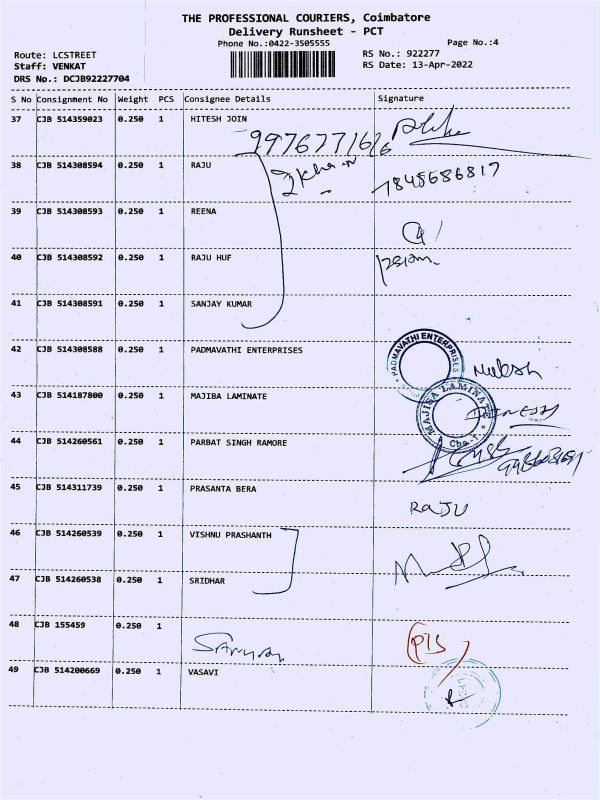 THE PROFESSIONAL COURIERS, Coimbatore
Delivery Runsheet - PCT
Phone No.:0422-3505555
Page No.:4
Route: LCSTREET
RS No.: 922277
Staff: VENKAT
RS Date: 13-Apr-2022
DRS No.: DCJB92227704
S No Consignment No Weight PCS Consignee Details Signature
37 CJB 514359023 0.250 1 HITESH JOIN
9976771616
38 CJB 514308594 0.250 1 RAJU
7845686817
39 CJB 514308593 0.250 1 REENA
40 CJB 514308592 0.250 1 RAJU HUF
41 CJB 514308591 0.250 1 SANJAY KUMAR
42 CJB 514308588 0.250 1 PADMAVATHI ENTERPRISES
PADMAVATHI ENTERPRISES
Mukesh
43 CJB 514187800 1 MAJIBA LAMINATE
0.250
MAJISA LAMINAT
Cbe-1
DINESH
44 CJB 514260561 0.250 1 PARBAT SINGH RAMORE
45 CJB 514311739 0.250 1 PRASANTA BERA
RAJU
46 CJB 514260539 0.250 1 VISHNU PRASHANTH
47 CJB 514260538 0.250 1 SRIDHAR
48 CJB 155459 0.250 1
49 CJB 514200669 0.250 1 VASAVI